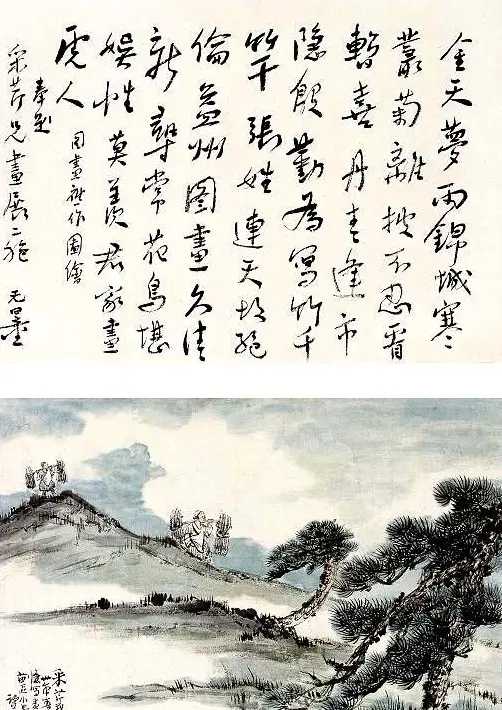 金天夢雨錦城寒
叢菊離披不忍看
暫喜丹青逢市
隱殷勤為寫竹千
竿張姓連天絕
倫益州圖畫久清
新尋常花鳥堪
娛性莫羨君家畫
虎人
畫社作圖繪
奉題
采芹兄畫展二絕 无量
采芹